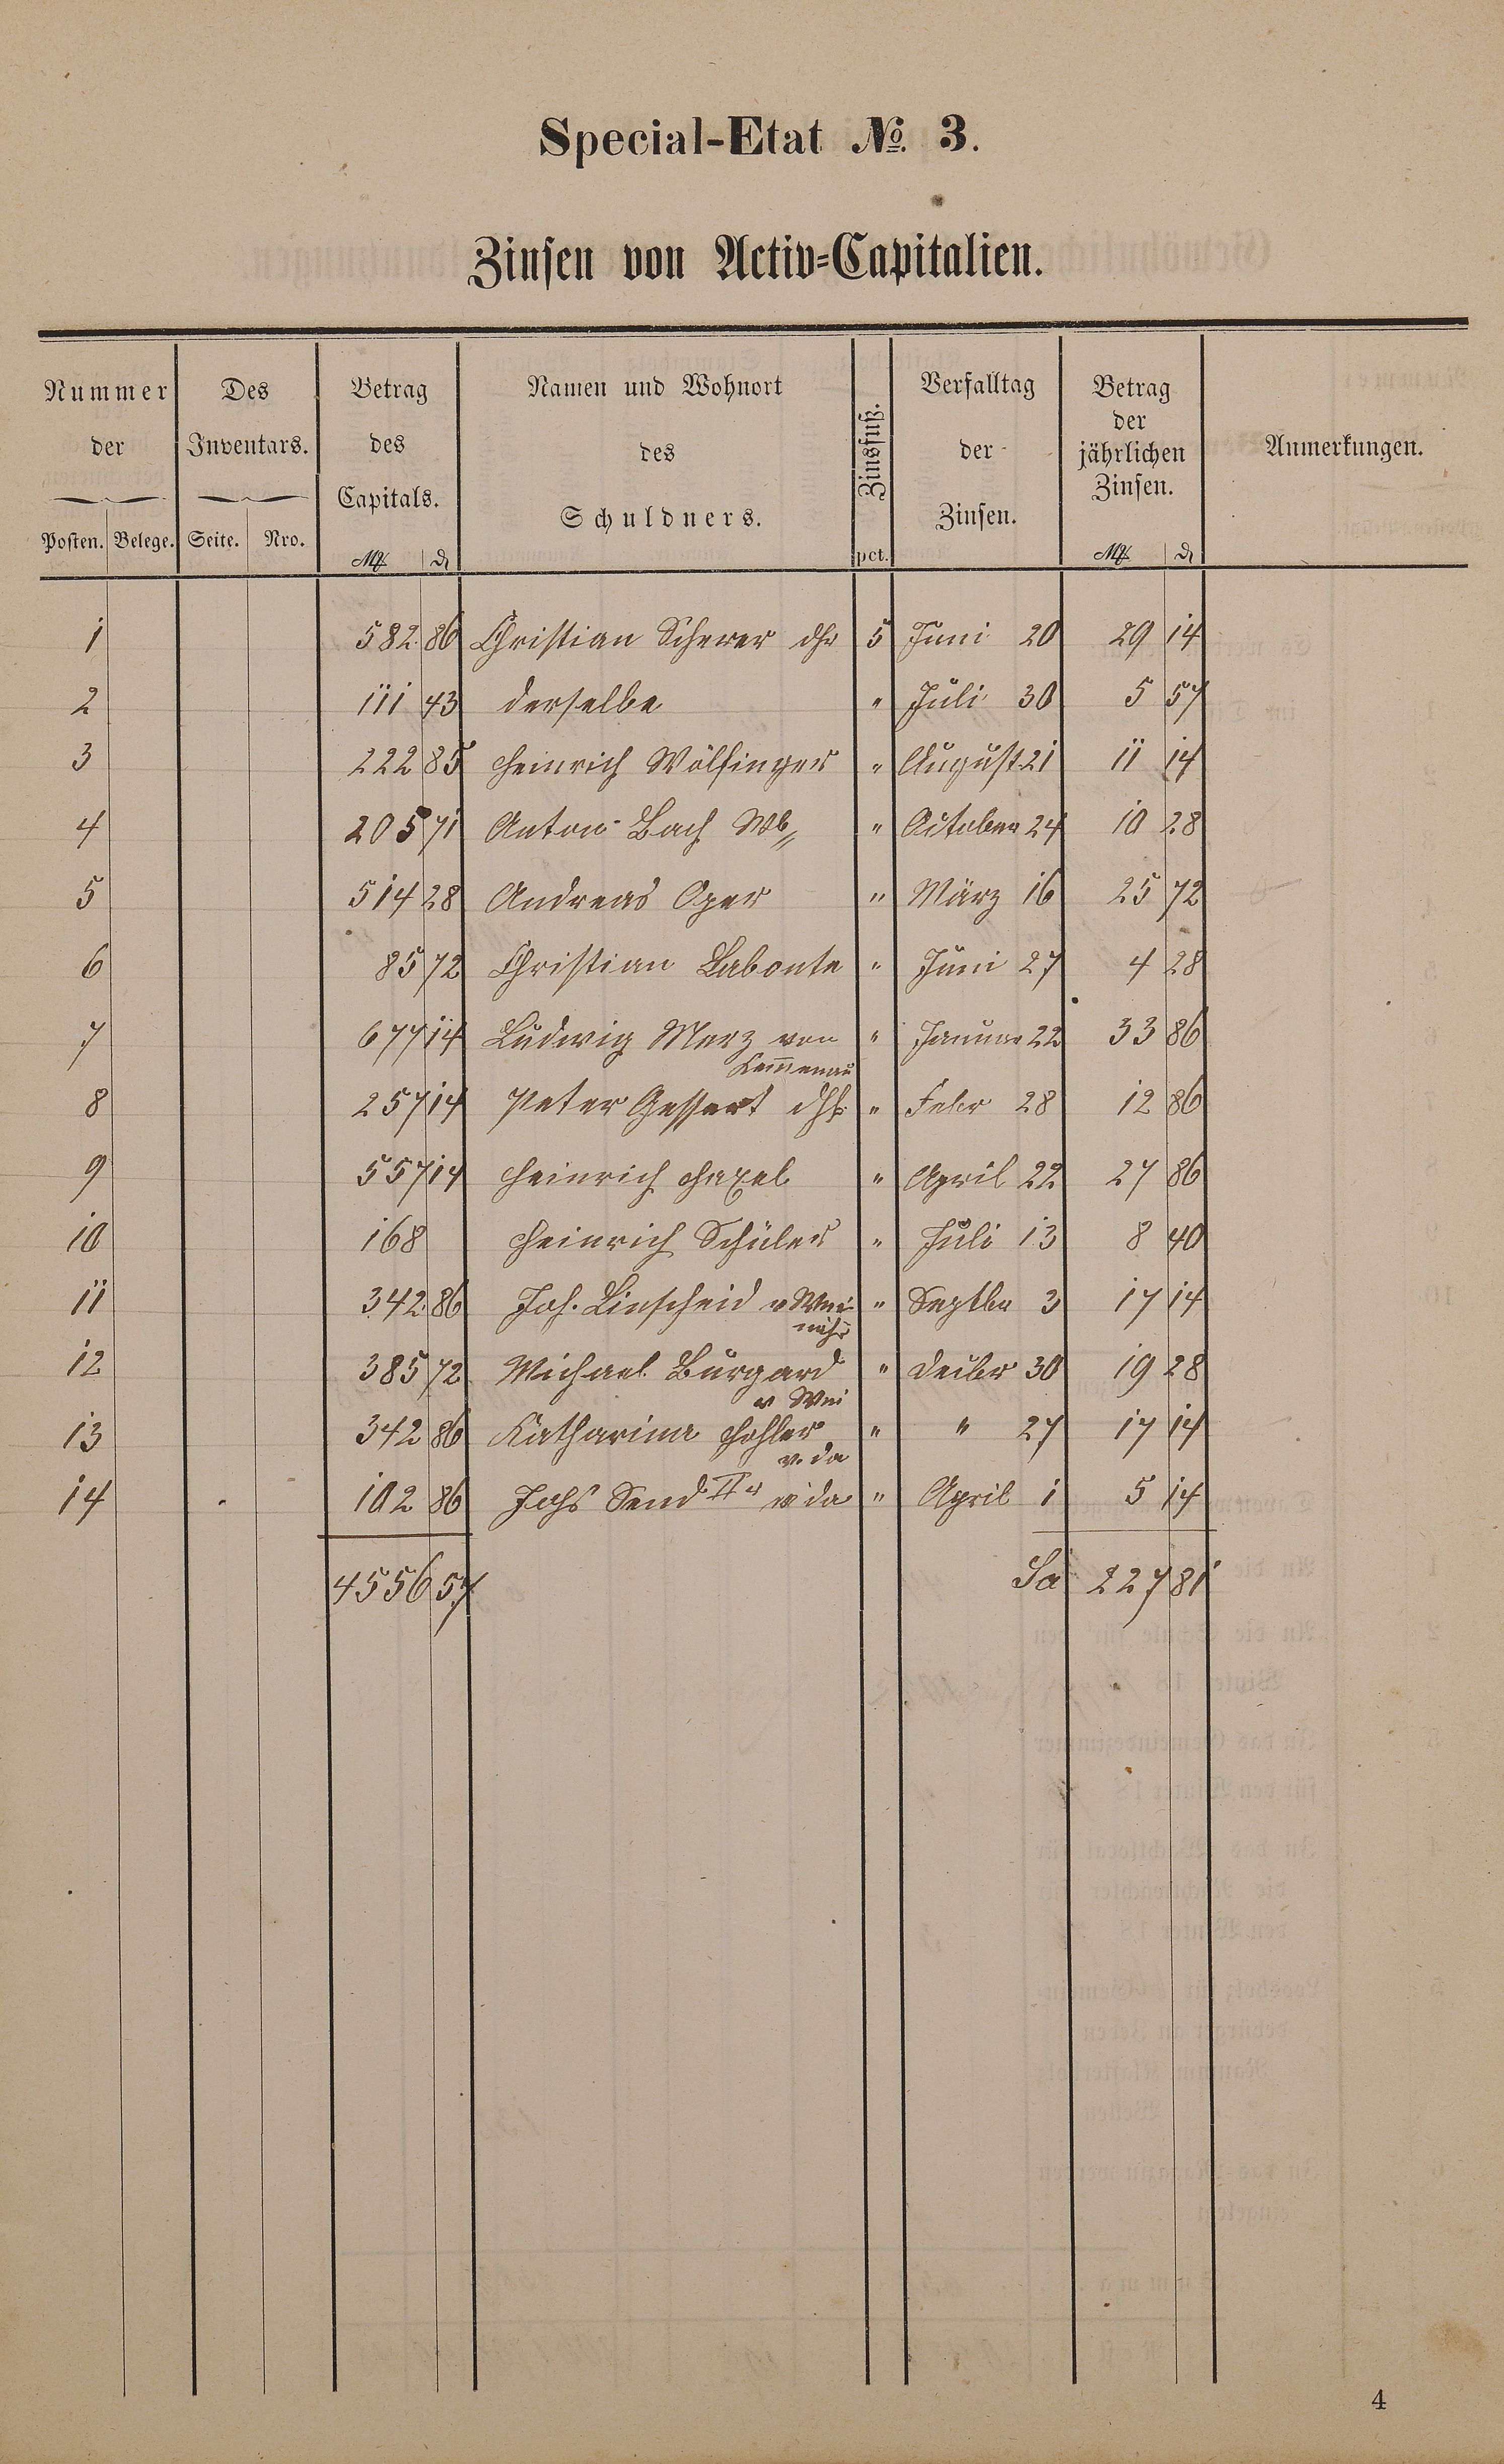 Special-Etat No. 3.
Zinsen von Activ-Capitalien.
Nummer der Posten. Belege. Des Inventars. Seite. Nro. Betrag des Capitals. M. d. Namen und Wohnort des Schuldners. Zinsfuß. pct. Verfalltag der Zinsen. Betrag der jährlichen Zinsen. M. d. Anmerkungen.
1 582 86 Christian Scherer dhr 5 Juni 20 29 14
2 111 43 derselbe " Juli 30 5 57
3 222 85 Heinrich Wölfinger " August 21 11 14
4 205 71 Anton Bach Wb " October 24 10 28
5 514 28 Andreas Oper " März 16 25 72
6 85 72 Christian Labonte " Juni 27 4 28
7 677 14 Ludwig Merz von " Januar 22 33 86
Kemmenau
8 257 14 Peter Gessert dhr " Febr 28 12 86
9 557 14 Heinrich Haxel " April 22 27 86
10 168 Heinrich Schüler " Juli 13 8 40
11 342 86 Joh. Linscheid v Wei " Septbr 3 17 14
nähr
12 385 72 Michael Burgard " Decbr 30 19 28
v Wei
13 342 86 Katharina Hohler " " 27 17 14
v. da
14 102 86 Johs Send IIr v da " April 1 5 14
4556 57 Sa 227 81
4